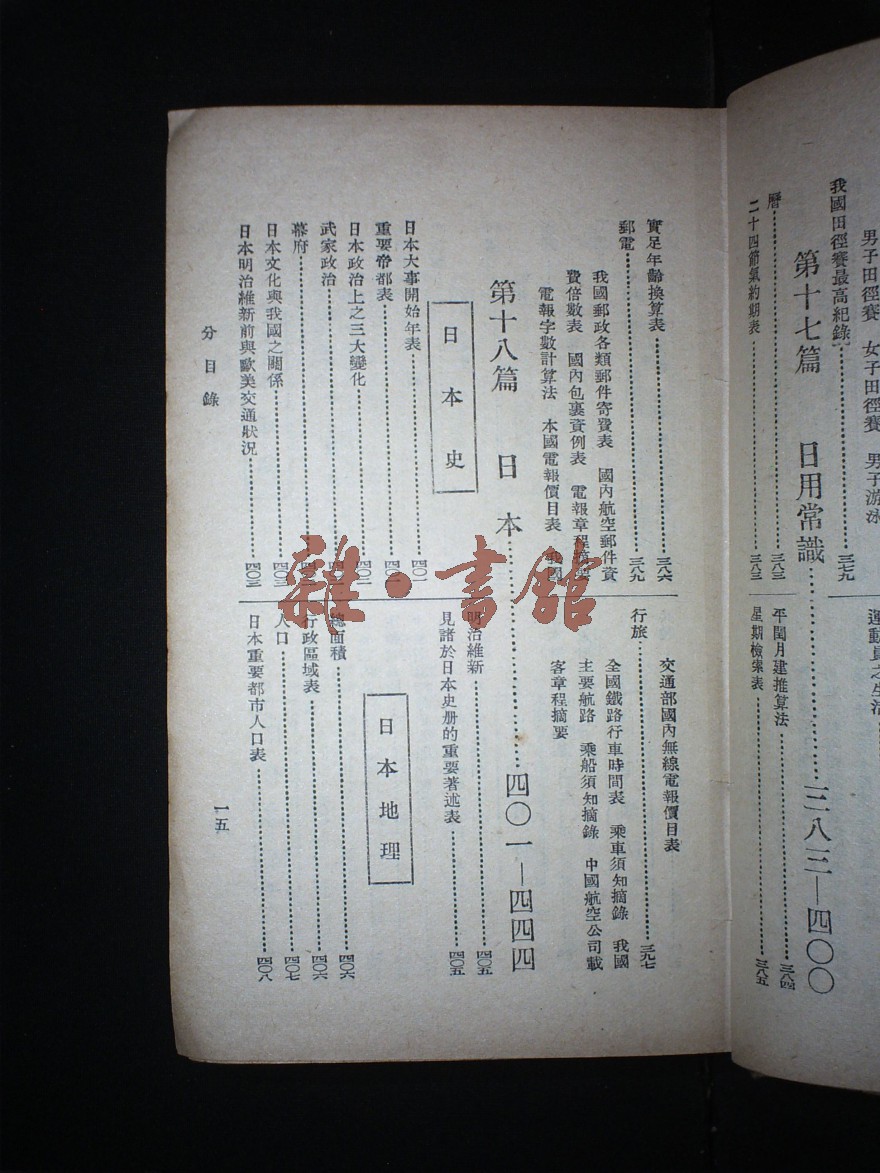 男子田徑賽　女子田徑賽　男子游泳
我國田徑賽最高紀錄…………三七九
運動員之生活
第十七篇　日用常識…………三八三—四〇〇
曆…………三八三
二十四節氣約期表…………三八三
平閏月建推算法…………三八四
星期檢索表…………三八五
實足年齡換算表…………三八六
郵電…………三八九
我國郵政各類郵件寄費表　國內航空郵件資
費倍數表　國內包裹資例表　電報章程摘要
電報字數計算法　本國電報價目表　我國
交通部國內無線電報價目表
行旅…………三九七
全國鐵路行車時間表　乘車須知摘錄　我國
主要航路　乘船須知摘錄　中國航空公司載
客章程摘要
第十八篇　日本…………四〇一—四四四
日本史
日本大事開始年表…………四〇一
重要帝都表…………四〇二
日本政治上之三大變化…………四〇二
武家政治…………
幕府…………
日本文化與我國之關係…………四〇三
日本明治維新前與歐美交通狀況…………四〇三
明治維新…………四〇五
見諸於日本史册的重要著述表…………四〇五
日本地理
總面積…………四〇六
行政區域表…………四〇六
人口…………四〇七
日本重要都市人口表…………四〇八
分目錄
一五
雜·書館